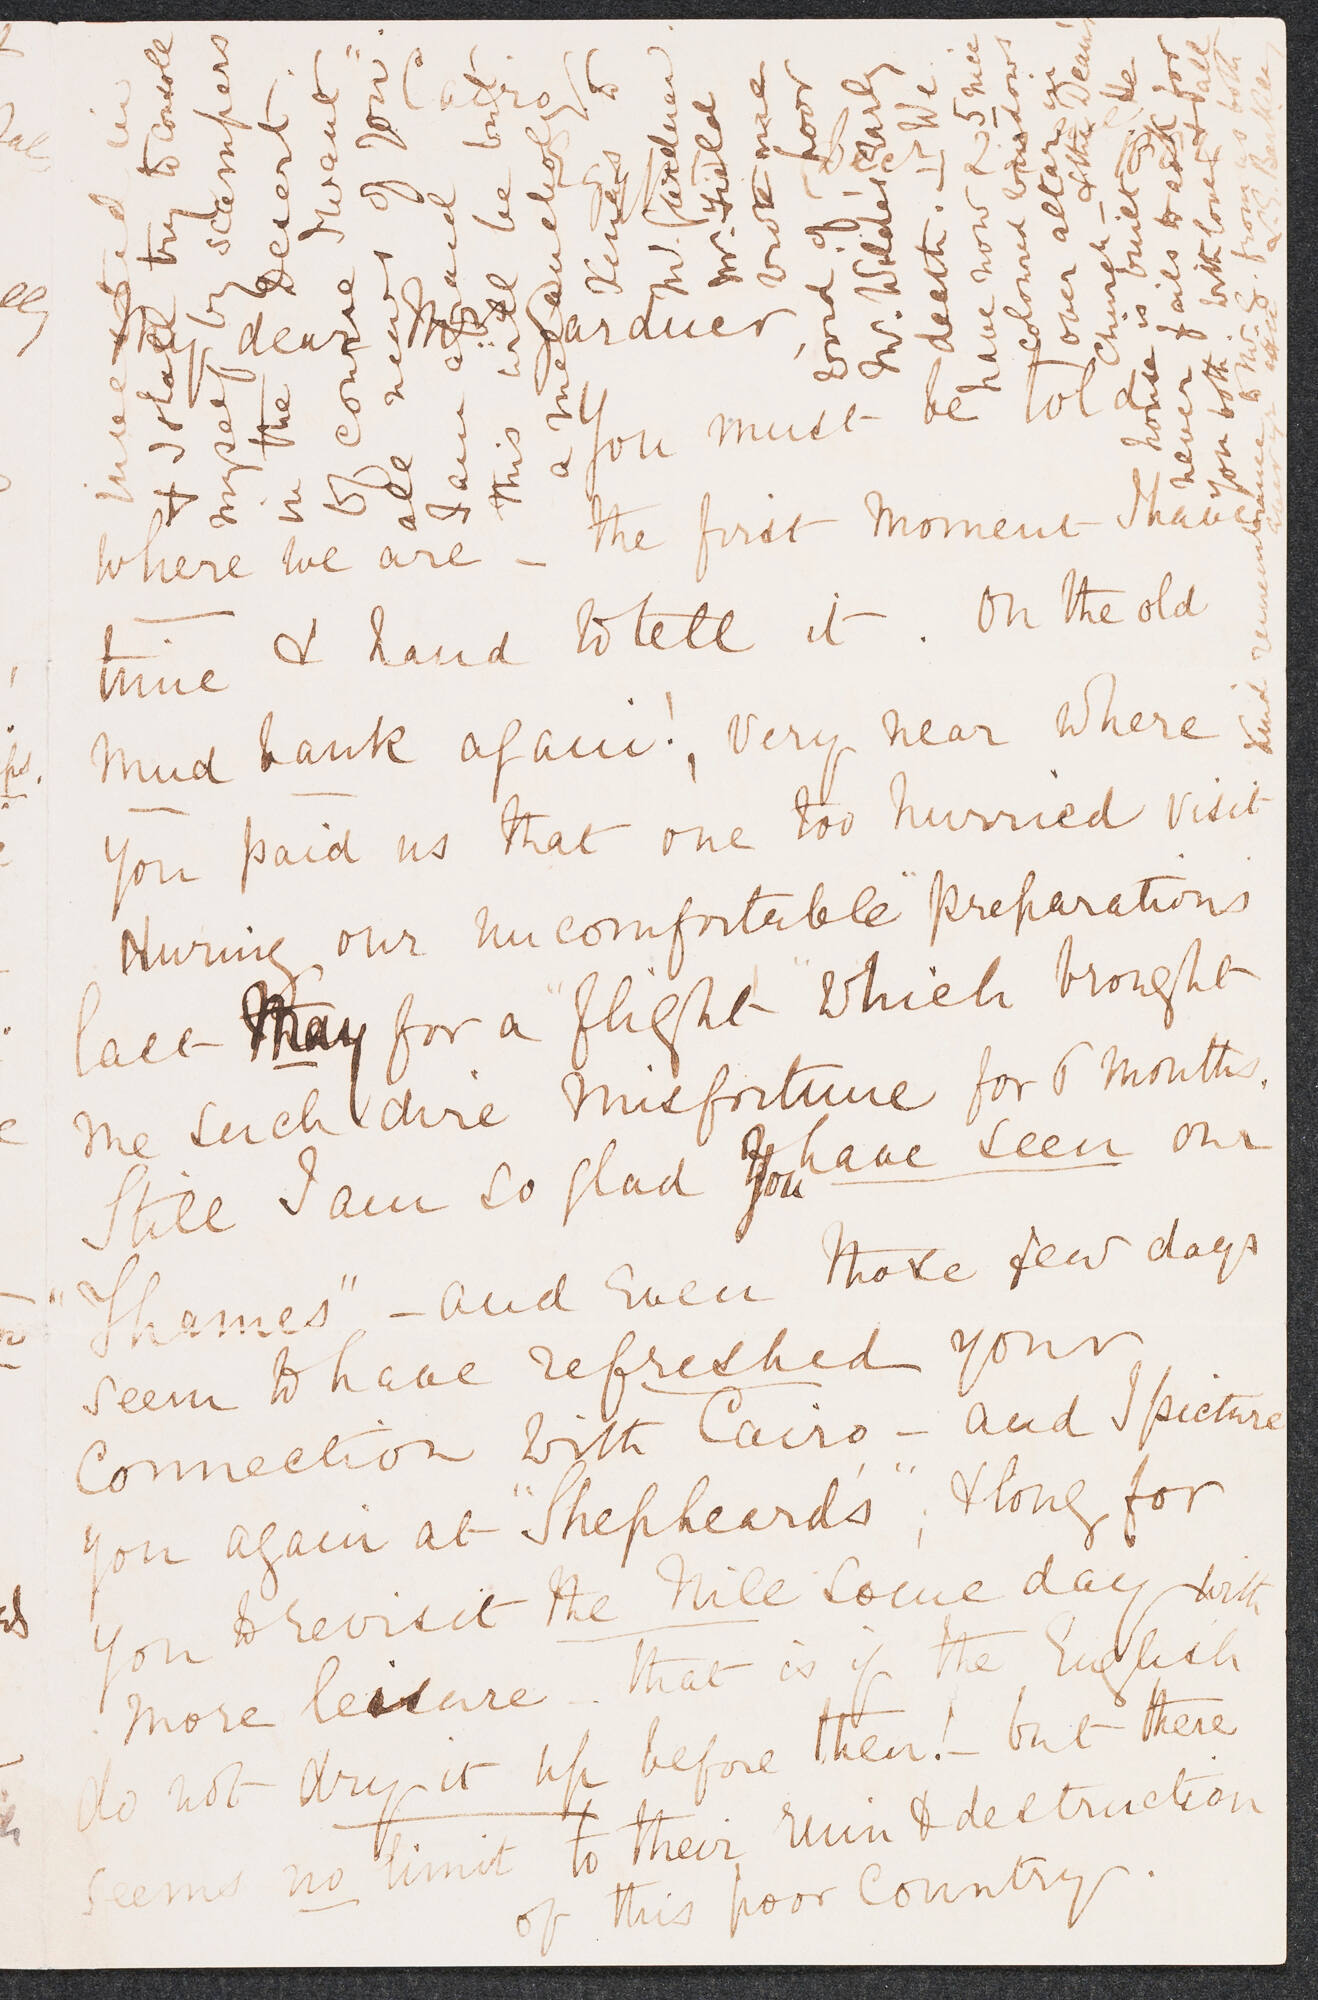 My dear Mrs Gardner,
You must be told
where we are - the first moment I have
time & hand to tell it. On the old
mud bank again!, very near where
you paid us that one too hurried visit
during our uncomfortable "preparations
last May for a "flight" which brought
me such dire misfortune for 6 months.
Still I am so glad you have seen our
"Thames" - and even those few days
seem to have refreshed your
connection with Cairo, - and I picture
you again at "Shepheard's", & long for
you to revisit the Nile some day with
more leisure - that is if the English
do not dry it up before then! - but there
seems no limit to their ruin & destruction
of this poor country.
interested in
& I shall try to console
myself by scampers
in the Desert.
Of course I want
all news of you".
I am afraid Cairo
this will be but
a melancholy
Kindest to
Mr. Gardner.
Mr. Field
wrote me
word of poor
Mr. Wilde's early
death. - We
have now 25 nice
coloured windows
over altar in
Church - & the Dean's
house is built. He
never fails to ask for
you both. with love & all
kind remembrance to Mr. G. from us both